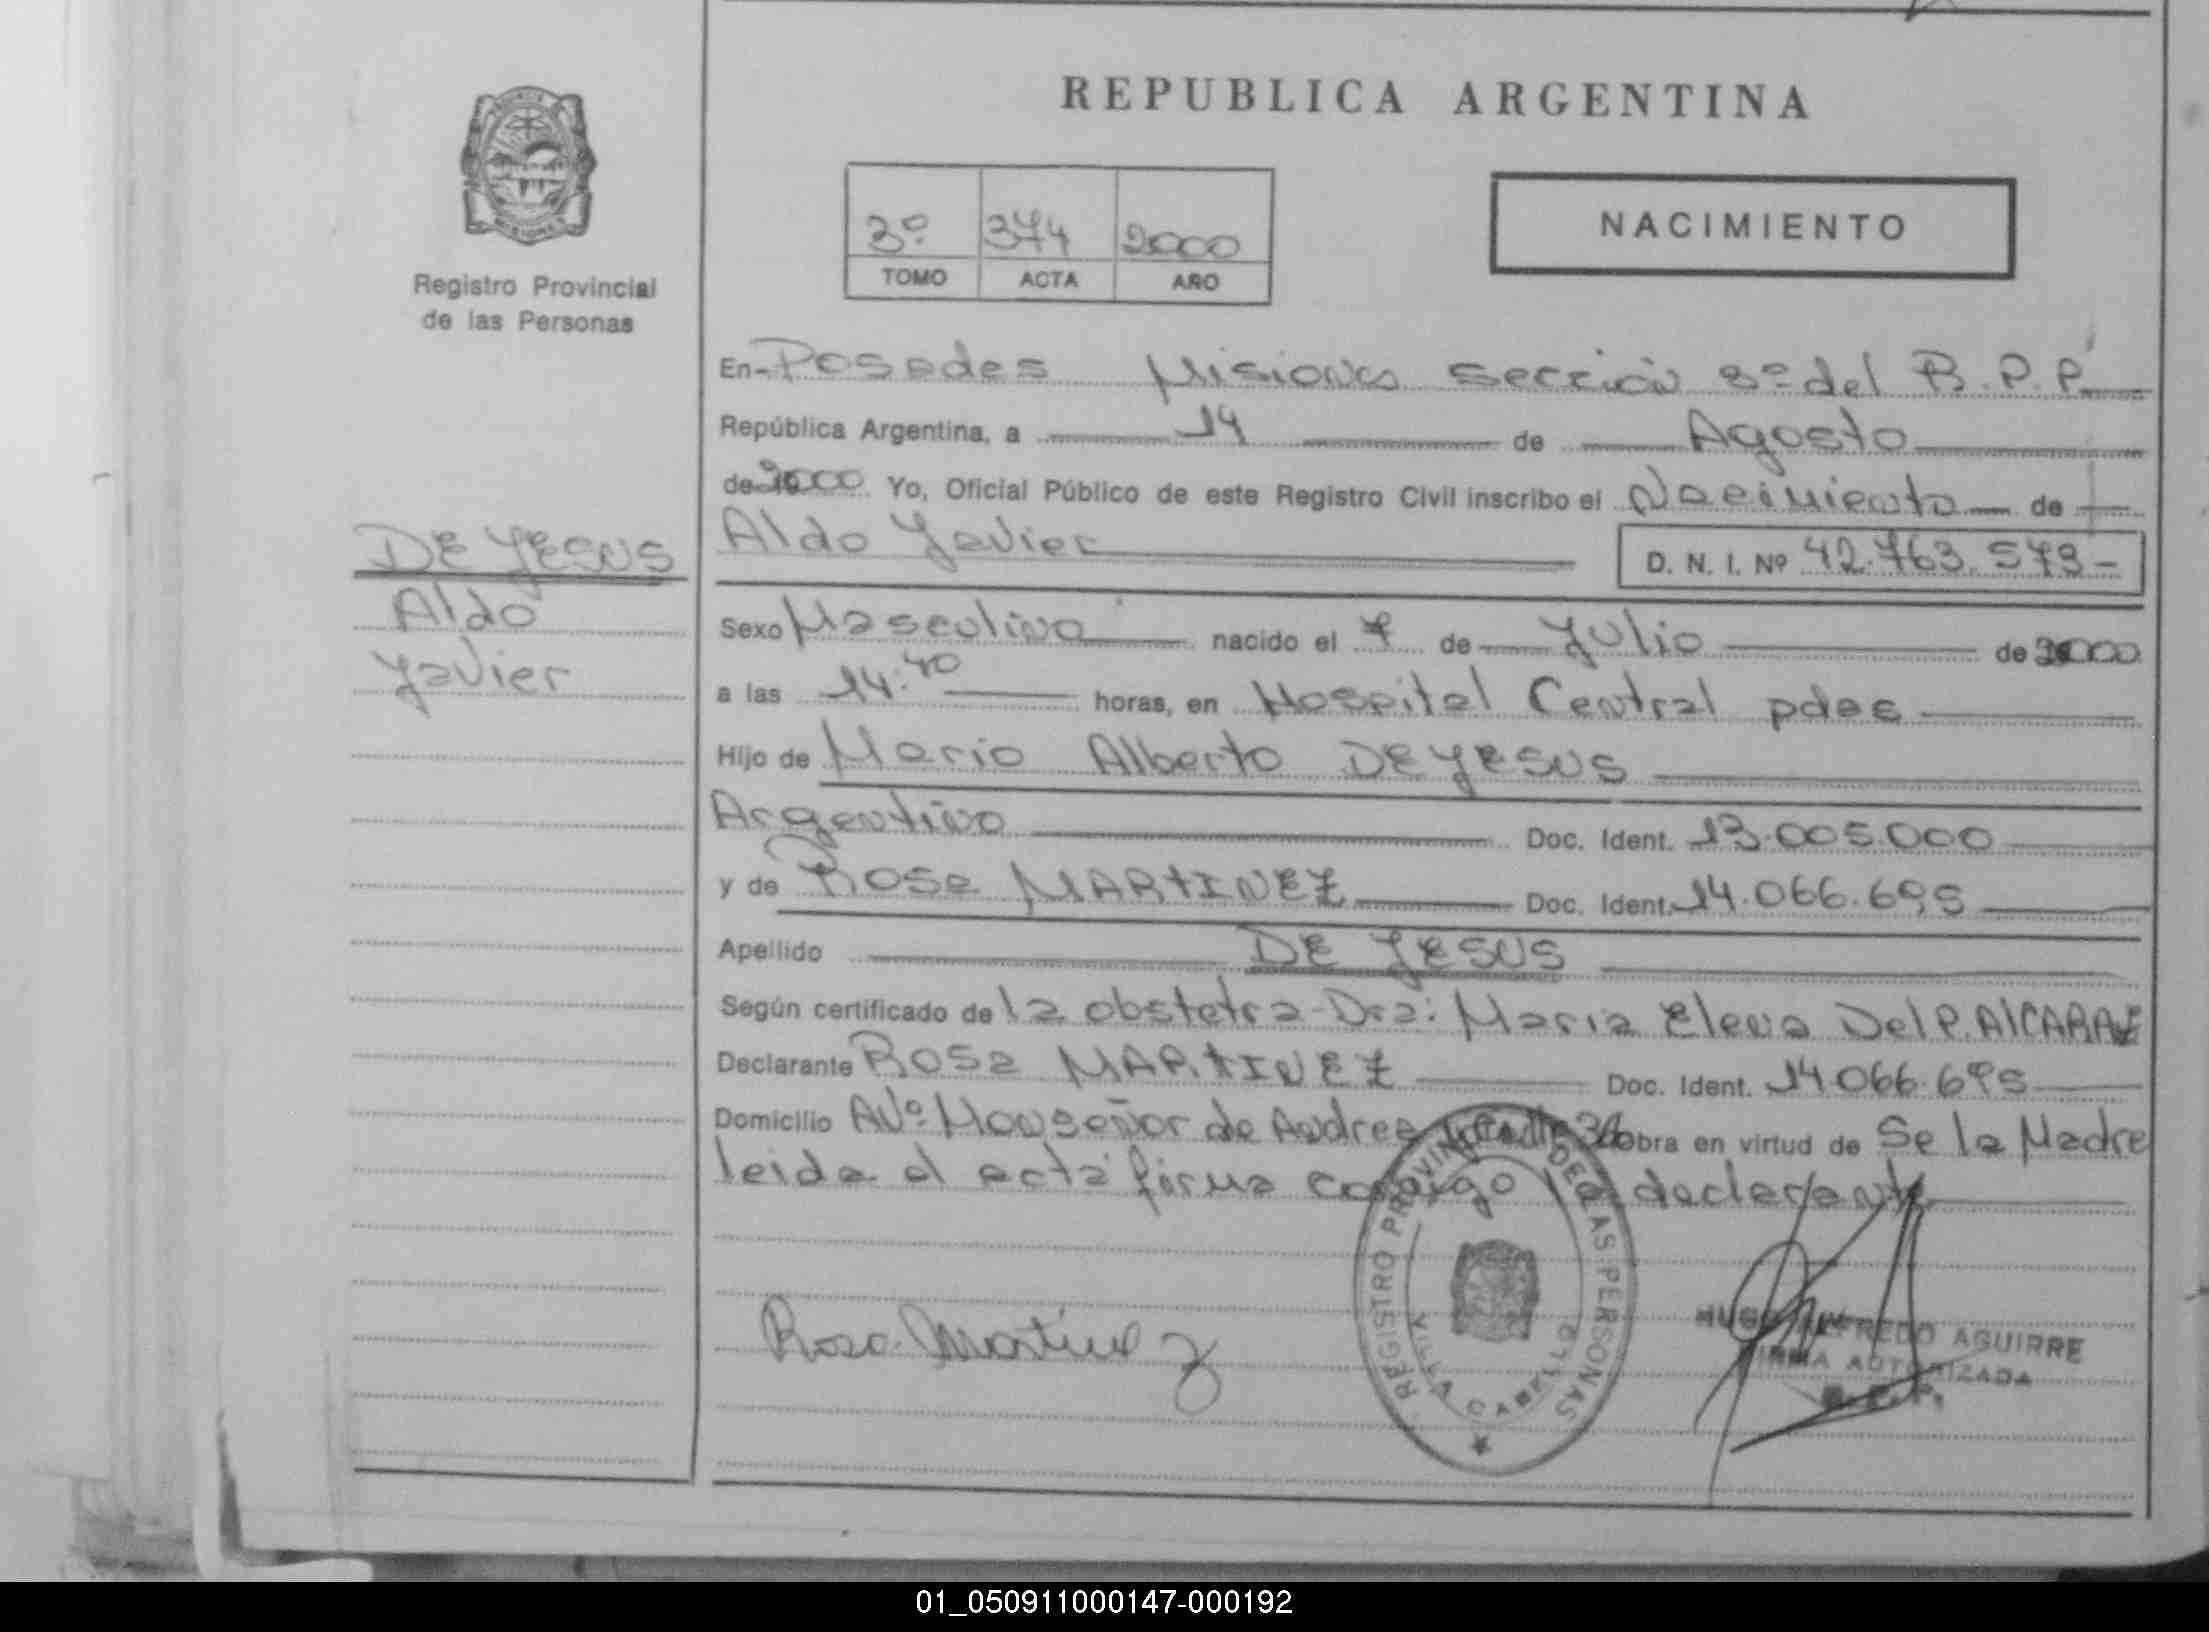 REPUBLICA ARGENTINA
3º 374 2000
TOMO ACTA AÑO
NACIMIENTO
Registro Provincial
de las Personas
En Posadas Misiones sección 8º del R.P.P.
República Argentina, a 14 de Agosto
de 2000 Yo, Oficial Público de este Registro Civil inscribo el Nacimiento de
DE JESUS
Aldo
Javier
Aldo Javier
D. N. I. Nº 42.763.573-
Sexo Masculino nacido el 7 de Julio de 2000
a las 14:40 horas, en Hospital Central pdas
Hijo de Mario Alberto DE JESUS
Argentino Doc. Ident. 13.005.000
y de Rosa MARTINEZ Doc. Ident. 14.066.695
Apellido DE JESUS
Según certificado de la obstetra Dra: Maria Elena Del P. AlCARAZ
Declarante Rosa MARTINEZ Doc. Ident. 14066.695
Domicilio Avº Monseñor de Andrea obra en virtud de Se la Madre
leida el acta firma conmigo la declarante
Rosa Martinez
REGISTRO PROVINCIAL DE LAS PERSONAS
VILLA CABELLO
HUGO ALFREDO AGUIRRE
FIRMA AUTORIZADA
R. P. P.
01_050911000147-000192